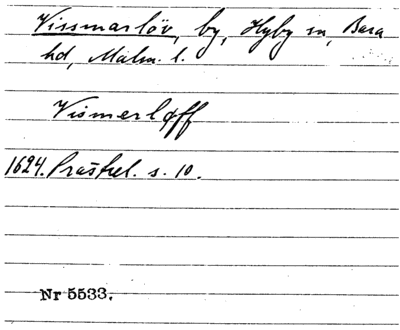 Vissmarlöv, by, Hyby sn, Bara
hd, Malm. l.
Vismerløff
1624. Prästrel. s. 10.
Nr 5533.